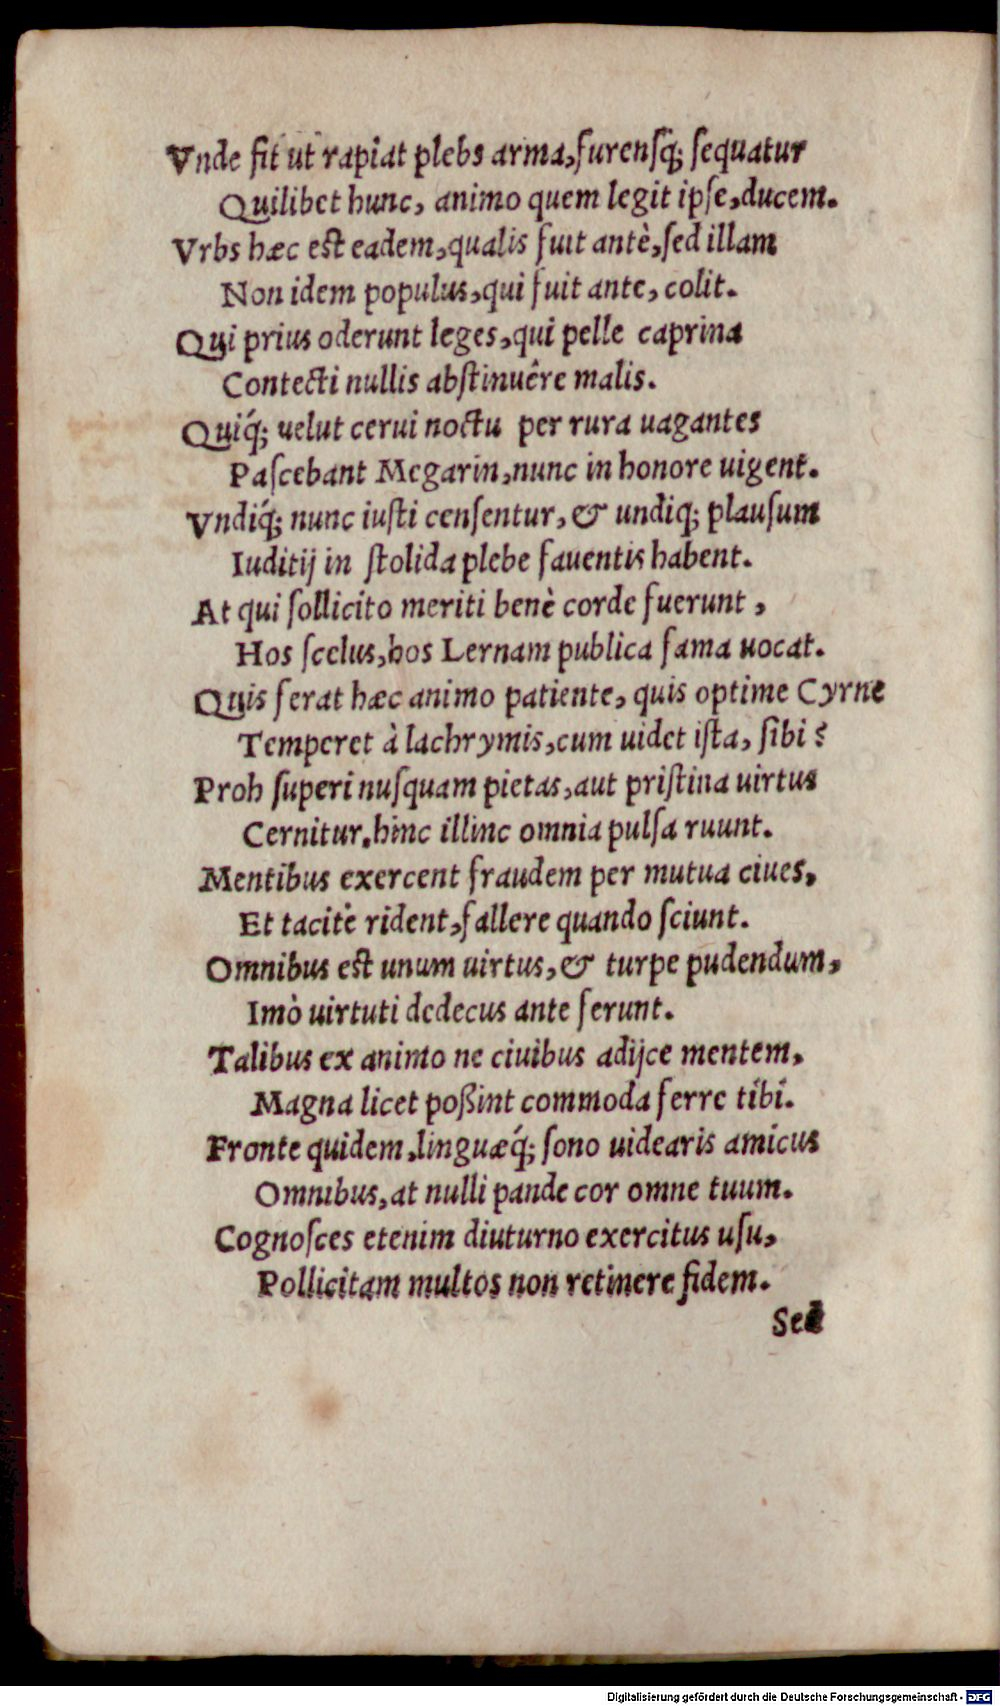 Vnde fit ut rapiat plebs arma, furensq́; sequatur
Quilibet hunc, animo quem legit ipse, ducem.
Vrbs hæc est eadem, qualis fuit antè, sed illam
Non idem populus, qui fuit ante, colit.
Qui prius oderunt leges, qui pelle caprina
Contecti nullis abstinuêre malis.
Quiq́; uelut cerui noctu per rura uagantes
Pascebant Megarin, nunc in honore uigent.
Vndiq́; nunc iusti censentur, & undiq; plausum
Iuditij in stolida plebe fauentis habent.
At qui sollicito meriti benè corde fuerunt,
Hos scelus, hos Lernam publica fama uocat.
Quis ferat hæc animo patiente, quis optime Cyrne
Temperet à lachrymis, cum uidet ista, sibi?
Proh superi nusquam pietas, aut pristina uirtus
Cernitur, hinc illinc omnia pulsa ruunt.
Mentibus exercent fraudem per mutua ciues,
Et tacitè rident, fallere quando sciunt.
Omnibus est unum uirtus, & turpe pudendum,
Imò uirtuti dedecus ante ferunt.
Talibus ex animo ne ciuibus adijce mentem,
Magna licet poßint commoda ferre tibi.
Fronte quidem, linguæq́; sono uidearis amicus
Omnibus, at nulli pande cor omne tuum.
Cognosces etenim diuturno exercitus usu,
Pollicitam multos non retinere fidem.
Sed
Digitalisierung gefördert durch die Deutsche Forschungsgemeinschaft - DFG